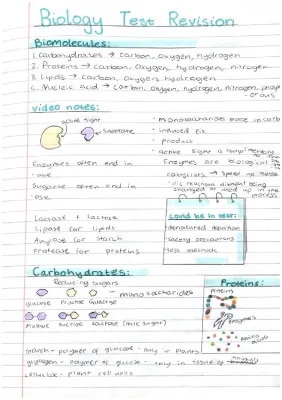 Biology Test Revision
Biomolecules:
1. Carbohydrates → carbon, oxygen, hydrogen
2. Proteins → carbon, oxygen, hydrogen, nitrogen
3. Lipids → carbon, oxygen, hydrogen
4. Nucleic acid → carbon, oxygen, hydrogen, nitrogen, phosph
-orous
video notes:
active sight
substrate
• monosaccharides make up carb
• induced fit
• product
• active sight is complementary
Enzymes often end in
- ase
Enzymes are biological
catalysts → speed up these
Sugarse often end in
- ose
reactions without being
changed or used up in the
process
Lactase → lactose
Lipase for lipids
Amylase for starch
Protease for proteins
could be in test:
denatured definition
safety precautions
test methods
Carbohydrates:
Reducing sugars
- monosaccharides
glucose Fructose Galactose
Maltose Sucrose Lactose (milk sugar)
Proteins:
proteins
enzymes
Amino acids
starch - polymer of glucose - only in plants
glycogen - polymer of glucose - only in
cellulose - plant cell walls